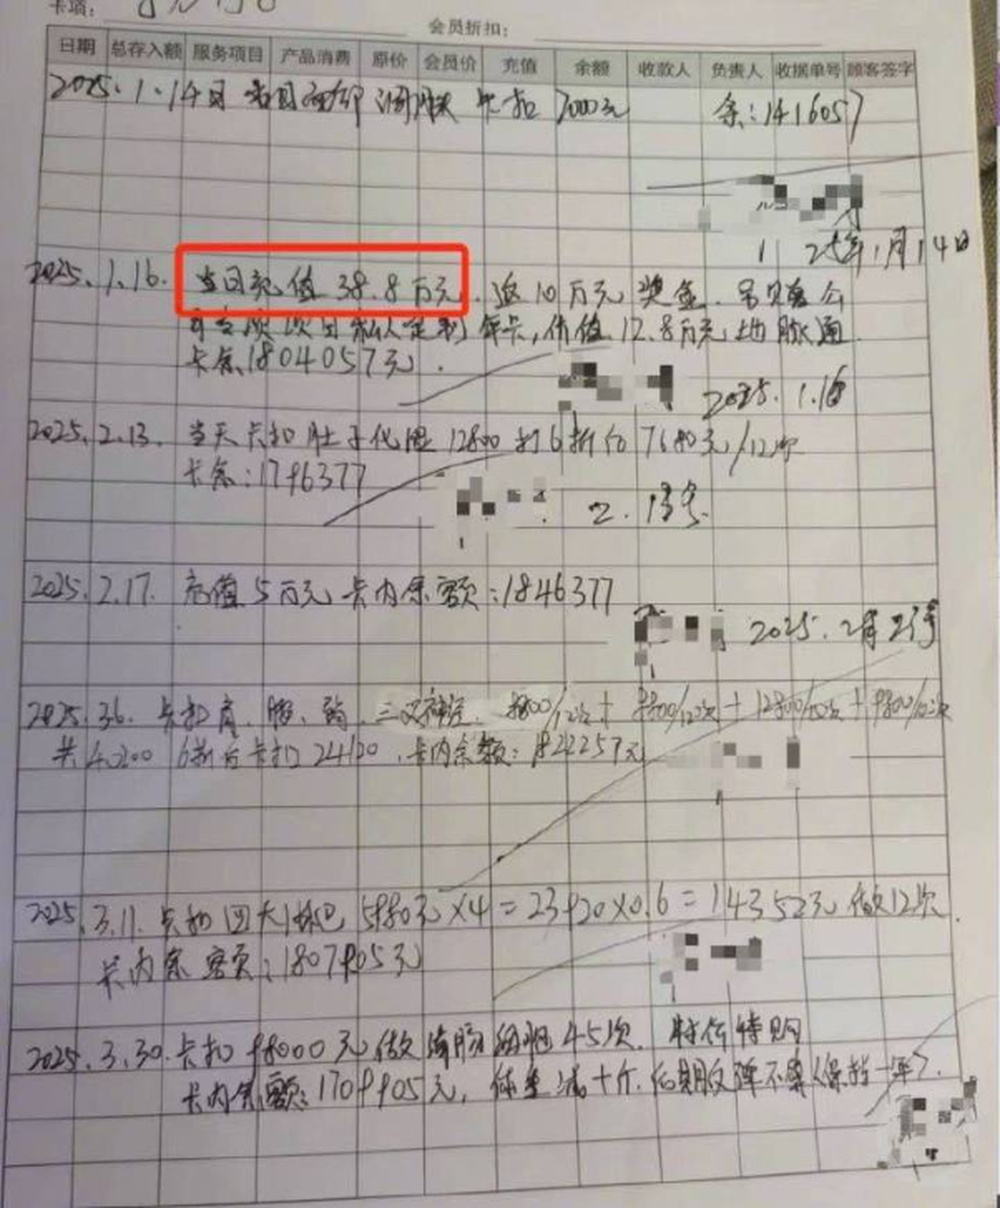 卡项：
会员折扣：
日期 总存入额 服务项目 产品消费 原价 会员价 充值 余额 收款人 负责人 收据单号 顾客签字
2025.1.14日 当日 调 卡扣 7000元 余：1416057
1 25年1月14日
2025.1.16. 当日充值 38.8万元. 返10万元奖金. 另
次 私人定制年卡，价值12.8万元 地脉通
卡余.1804057元.
2025.1.16
2025.2.13. 当天卡扣 肚子化湿 12800打6折 7680元/12次
卡余：1796377
2.13号
2025.2.17. 充值5万元 卡内余额：1846377
2025.2月21号
2025.3.6. 卡扣 肩. 三叉神经. 9800/12次+9800/12次+12800/12次+9800/12次
共 6折后卡扣24120.卡内余额：1822257元
2025.3.11. 卡扣四大 5980元×4=23920×0.6=14352元 做12次.
卡内余额：1807905元
2025.3.30.卡扣98000元做 45次. 特价特购
卡内余额：1709905元，体重减十斤.后期反弹不 保持一年).